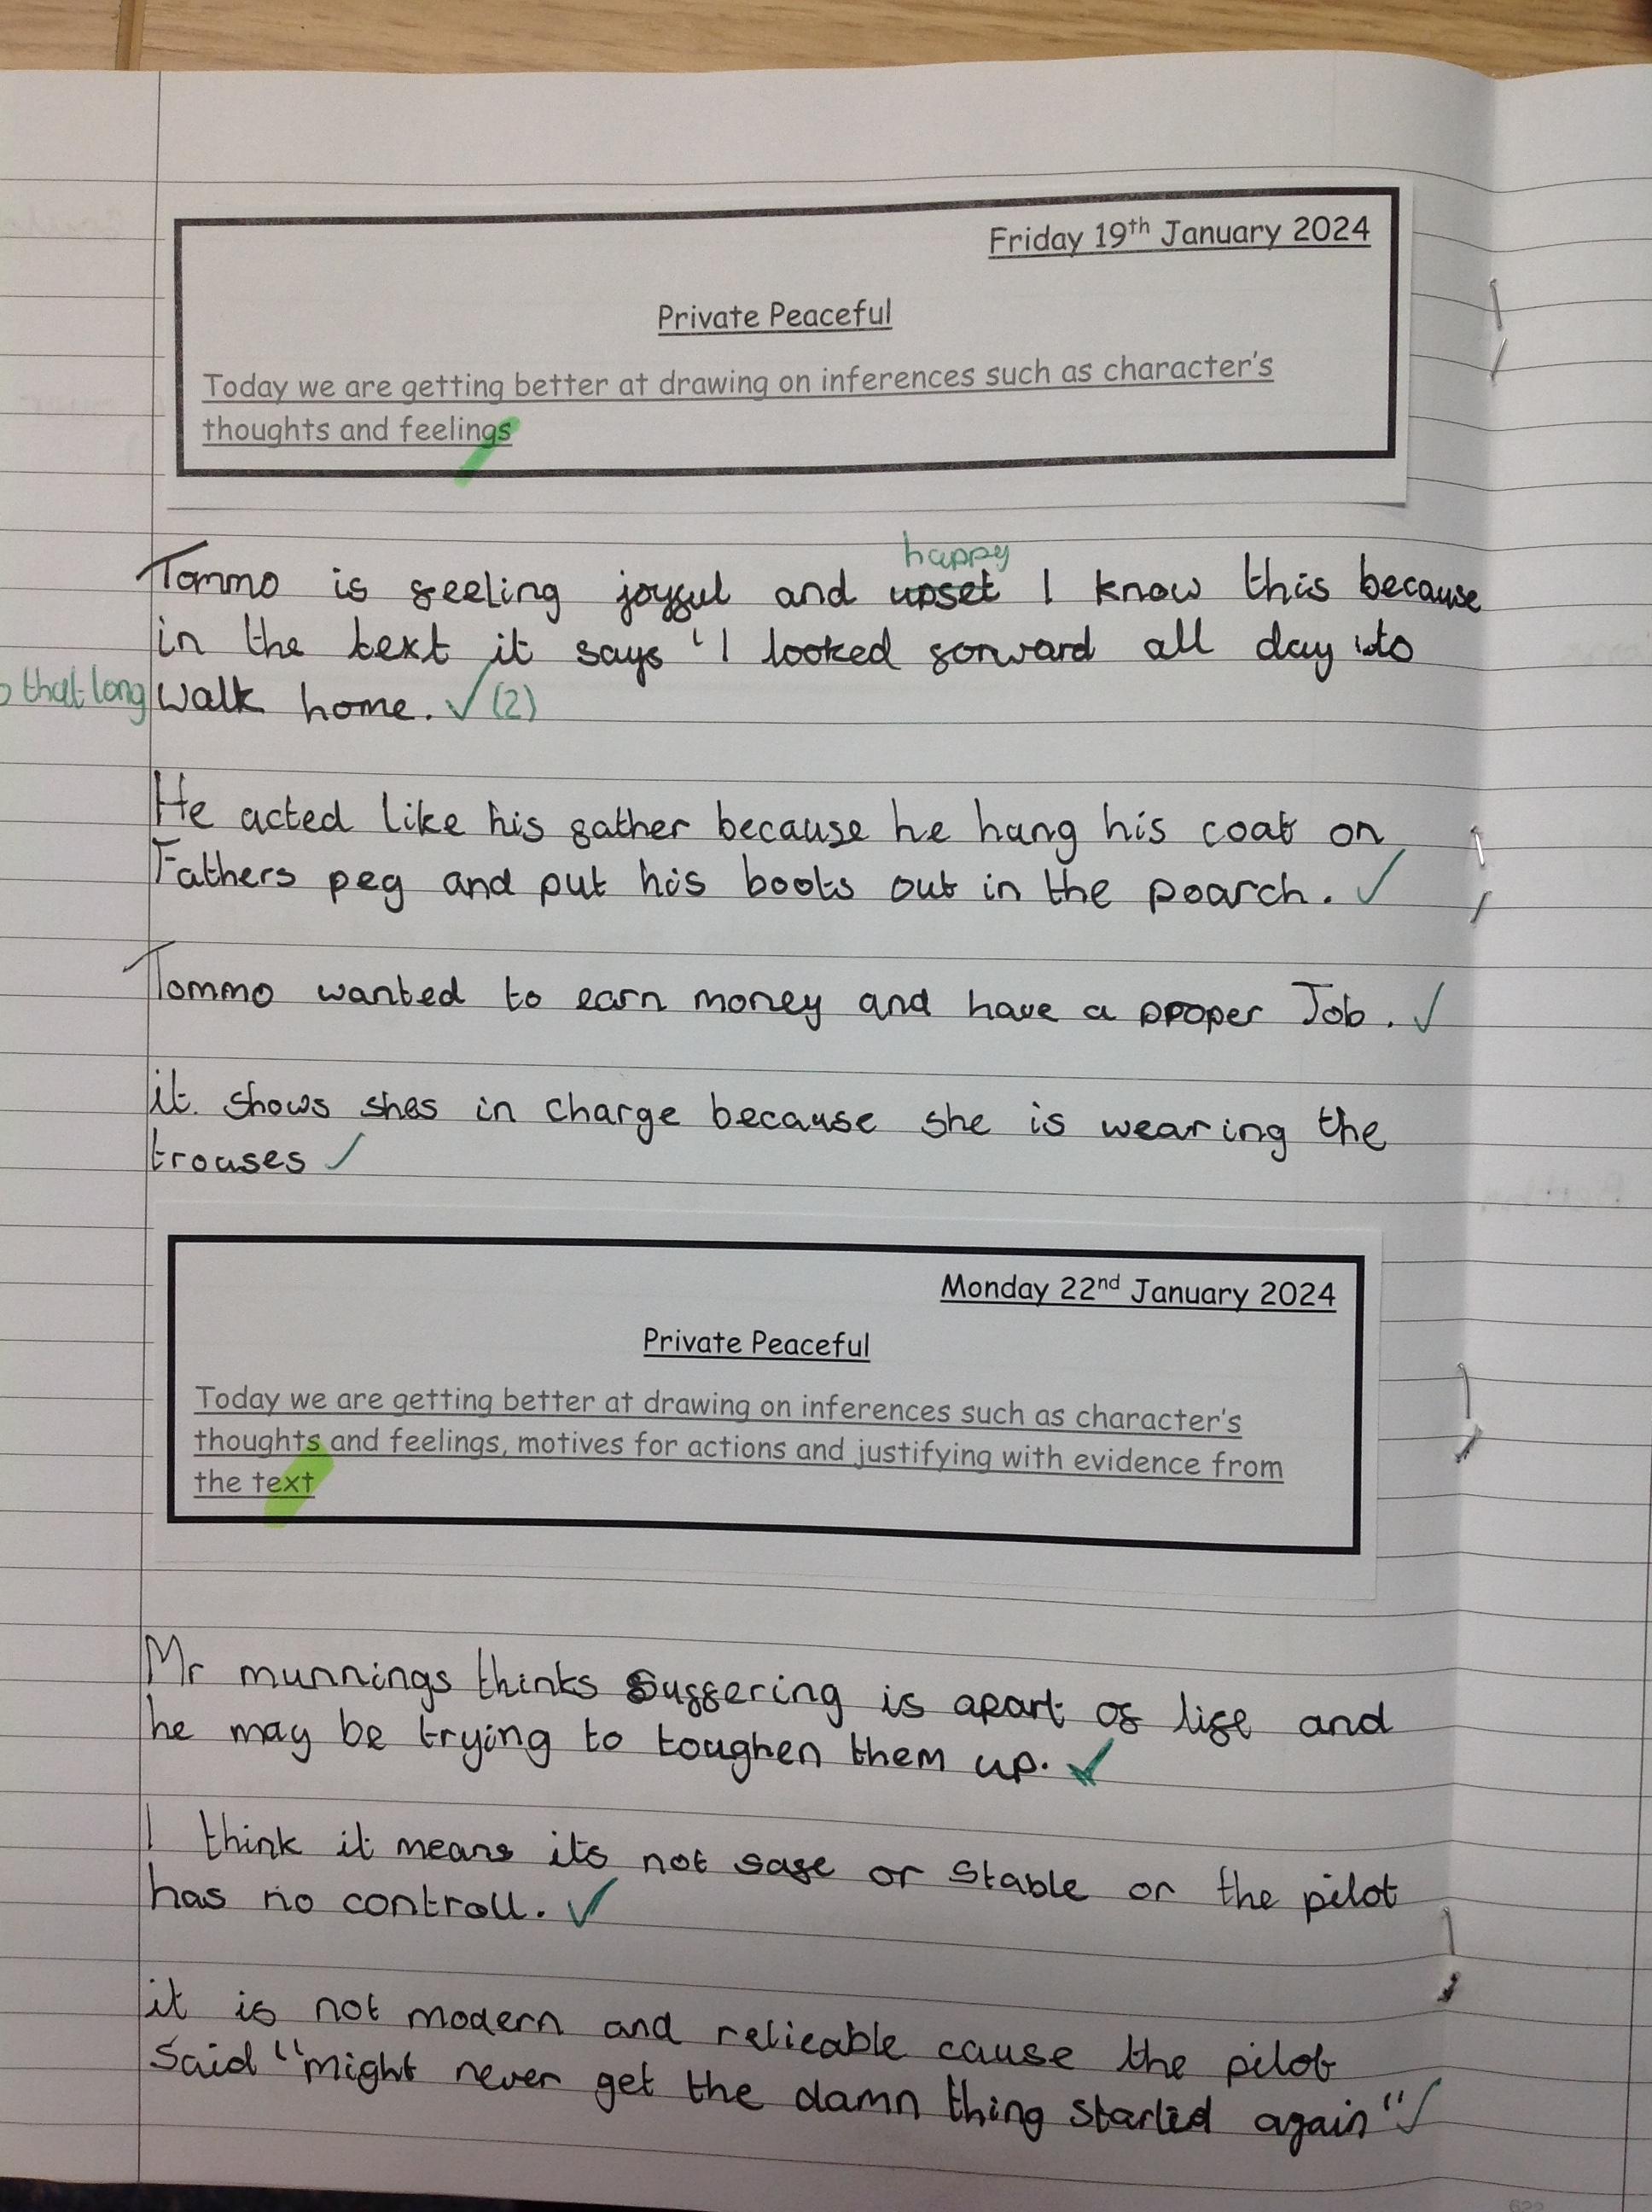 Friday 19th January 2024
Private Peaceful
Today we are getting better at drawing on inferences such as character's
thoughts and feelings
happy
Tommo is feeling joyful and upset I know this because
in the text it says 'I looked forward all day to
that long walk home. ✓ (2)
He acted like his father because he hang his coat on
Fathers peg and put his boots out in the poarch. ✓
Tommo wanted to earn money and have a proper Job. ✓
it. shows shes in charge because she is wearing the
trouses ✓
Monday 22nd January 2024
Private Peaceful
Today we are getting better at drawing on inferences such as character's
thoughts and feelings, motives for actions and justifying with evidence from
the text
Mr munnings thinks Suffering is apart of life and
he may be trying to toughen them up. ✓
I think it means its not safe or stable or the pilot
has no controll. ✓
it is not modern and relieable cause the pilot
said "might never get the damn thing started again" ✓